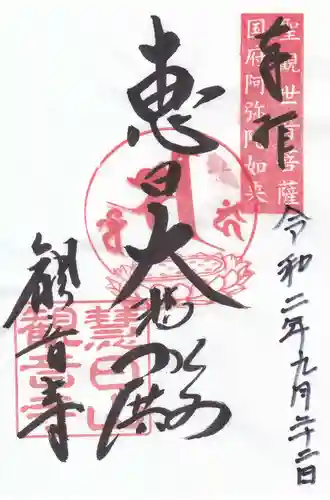 聖観世音菩薩
国府阿弥陀如来
奉拝
令和二年九月二十二日
恵日大悲殿
観音寺
慧日山
観音寺